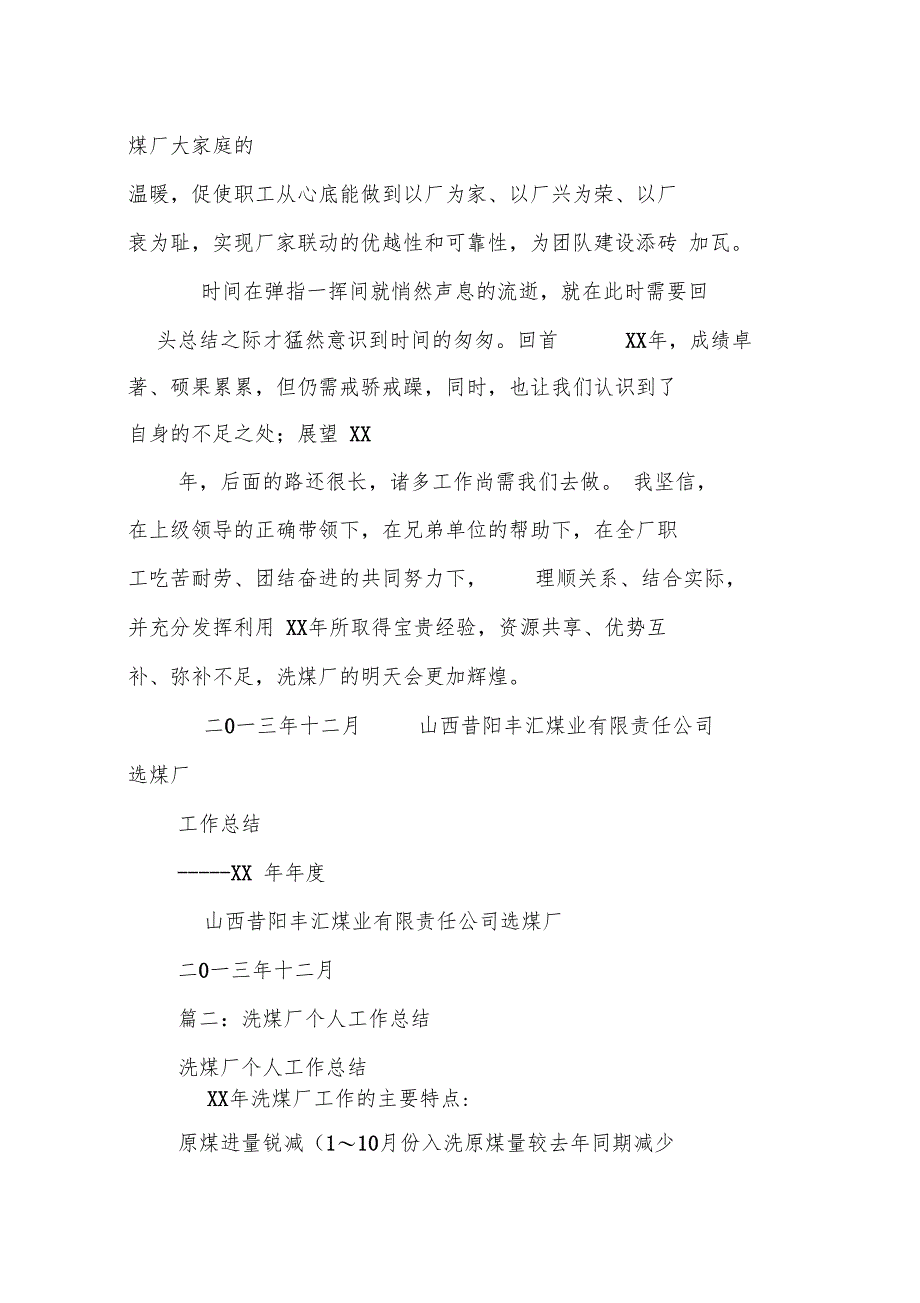 煤厂大家庭的
温暖，促使职工从心底能做到以厂为家、以厂兴为荣、以厂
衰为耻，实现厂家联动的优越性和可靠性，为团队建设添砖 加瓦。
时间在弹指一挥间就悄然声息的流逝，就在此时需要回
头总结之际才猛然意识到时间的匆匆。回首 XX年，成绩卓
著、硕果累累，但仍需戒骄戒躁，同时，也让我们认识到了
自身的不足之处；展望 XX
年，后面的路还很长，诸多工作尚需我们去做。 我坚信，
在上级领导的正确带领下，在兄弟单位的帮助下，在全厂职
工吃苦耐劳、团结奋进的共同努力下， 理顺关系、结合实际，
并充分发挥利用 XX年所取得宝贵经验，资源共享、优势互
补、弥补不足，洗煤厂的明天会更加辉煌。
二0一三年十二月 山西昔阳丰汇煤业有限责任公司
选煤厂
工作总结
-----XX 年年度
山西昔阳丰汇煤业有限责任公司选煤厂
二0一三年十二月
篇二：洗煤厂个人工作总结
洗煤厂个人工作总结
XX年洗煤厂工作的主要特点：
原煤进量锐减（1～10月份入洗原煤量较去年同期减少